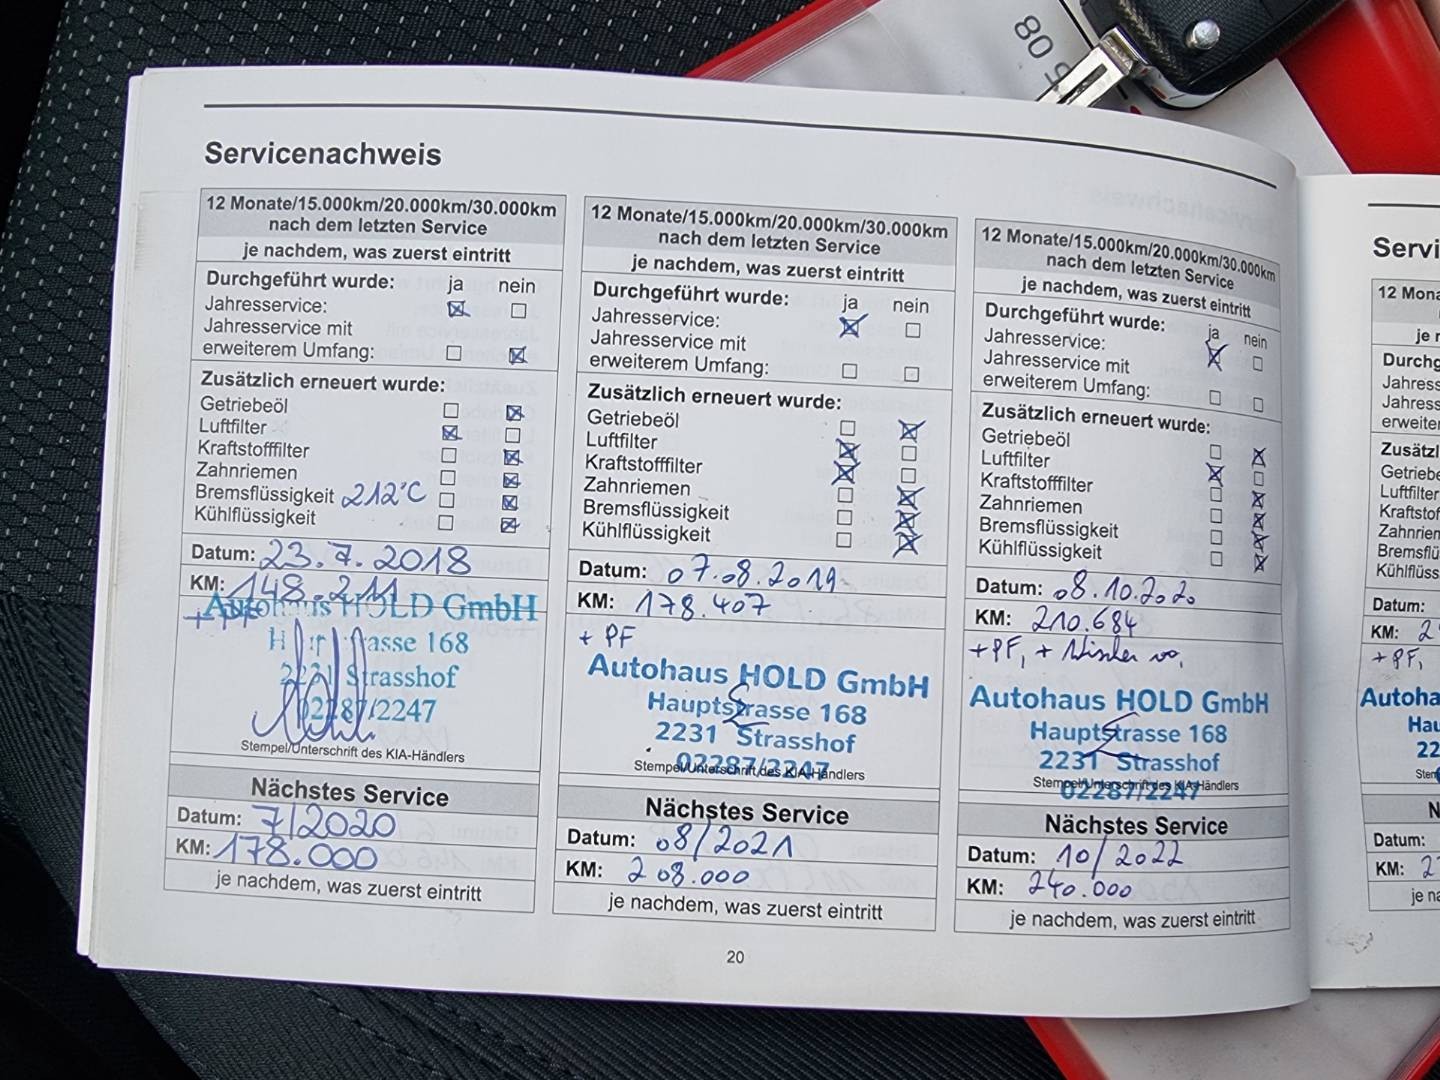 80
Servicenachweis
12 Monate/15.000km/20.000km/30.000km
nach dem letzten Service
je nachdem, was zuerst eintritt
Durchgeführt wurde: ja nein
Jahresservice:
Jahresservice mit
erweiterem Umfang:
Zusätzlich erneuert wurde:
Getriebeöl
Luftfilter
Kraftstofffilter
Zahnriemen
Bremsflüssigkeit 212°C
Kühlflüssigkeit
Datum: 23.7.2018
KM: 148.211
+ PF
Autohaus HOLD GmbH
Hauptstrasse 168
2231 Strasshof
02287/2247
Stempel/Unterschrift des KIA-Händlers
Nächstes Service
Datum: 7/2020
KM: 178.000
je nachdem, was zuerst eintritt
12 Monate/15.000km/20.000km/30.000km
nach dem letzten Service
je nachdem, was zuerst eintritt
Durchgeführt wurde: ja nein
Jahresservice:
Jahresservice mit
erweiterem Umfang:
Zusätzlich erneuert wurde:
Getriebeöl
Luftfilter
Kraftstofffilter
Zahnriemen
Bremsflüssigkeit
Kühlflüssigkeit
Datum: 07.08.2019
KM: 178.407
+ PF
Autohaus HOLD GmbH
Hauptstrasse 168
2231 Strasshof
02287/2247
Stempel/Unterschrift des KIA-Händlers
Nächstes Service
Datum: 08/2021
KM: 208.000
je nachdem, was zuerst eintritt
12 Monate/15.000km/20.000km/30.000km
nach dem letzten Service
je nachdem, was zuerst eintritt
Durchgeführt wurde: ja nein
Jahresservice:
Jahresservice mit
erweiterem Umfang:
Zusätzlich erneuert wurde:
Getriebeöl
Luftfilter
Kraftstofffilter
Zahnriemen
Bremsflüssigkeit
Kühlflüssigkeit
Datum: 08.10.2020
KM: 210.684
+ PF, + Wischer vo,
Autohaus HOLD GmbH
Hauptstrasse 168
2231 Strasshof
02287/2247
Stempel/Unterschrift des KIA-Händlers
Nächstes Service
Datum: 10/2022
KM: 240.000
je nachdem, was zuerst eintritt
20
Servi
12 Mona
je n
Durchg
Jahress
Jahress
erweiter
Zusätzl
Getriebe
Luftfilter
Kraftstof
Zahnrien
Bremsflü
Kühlflüss
Datum:
KM: 2
+ PF,
Autoha
Hau
22
Stem
N
Datum:
KM: 2
je na